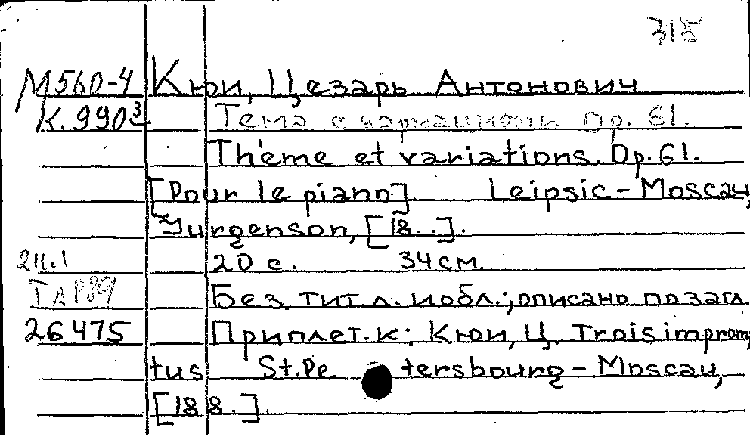 315
М560-4 Кюи, Цезарь Антонович
К.990³ Тема с вариациями Op. 61.
Thème et variations. Op. 61.
[Pour le piano] Leipsic - Moscau,
Jurgenson, [18..].
20 с. 34 см
Без тит. л. и обл.; описано по загл.
26475 Приплет. к: Кюи, Ц. Trois impromp
tus St. Pe tersbourg - Moscau,
[188.].